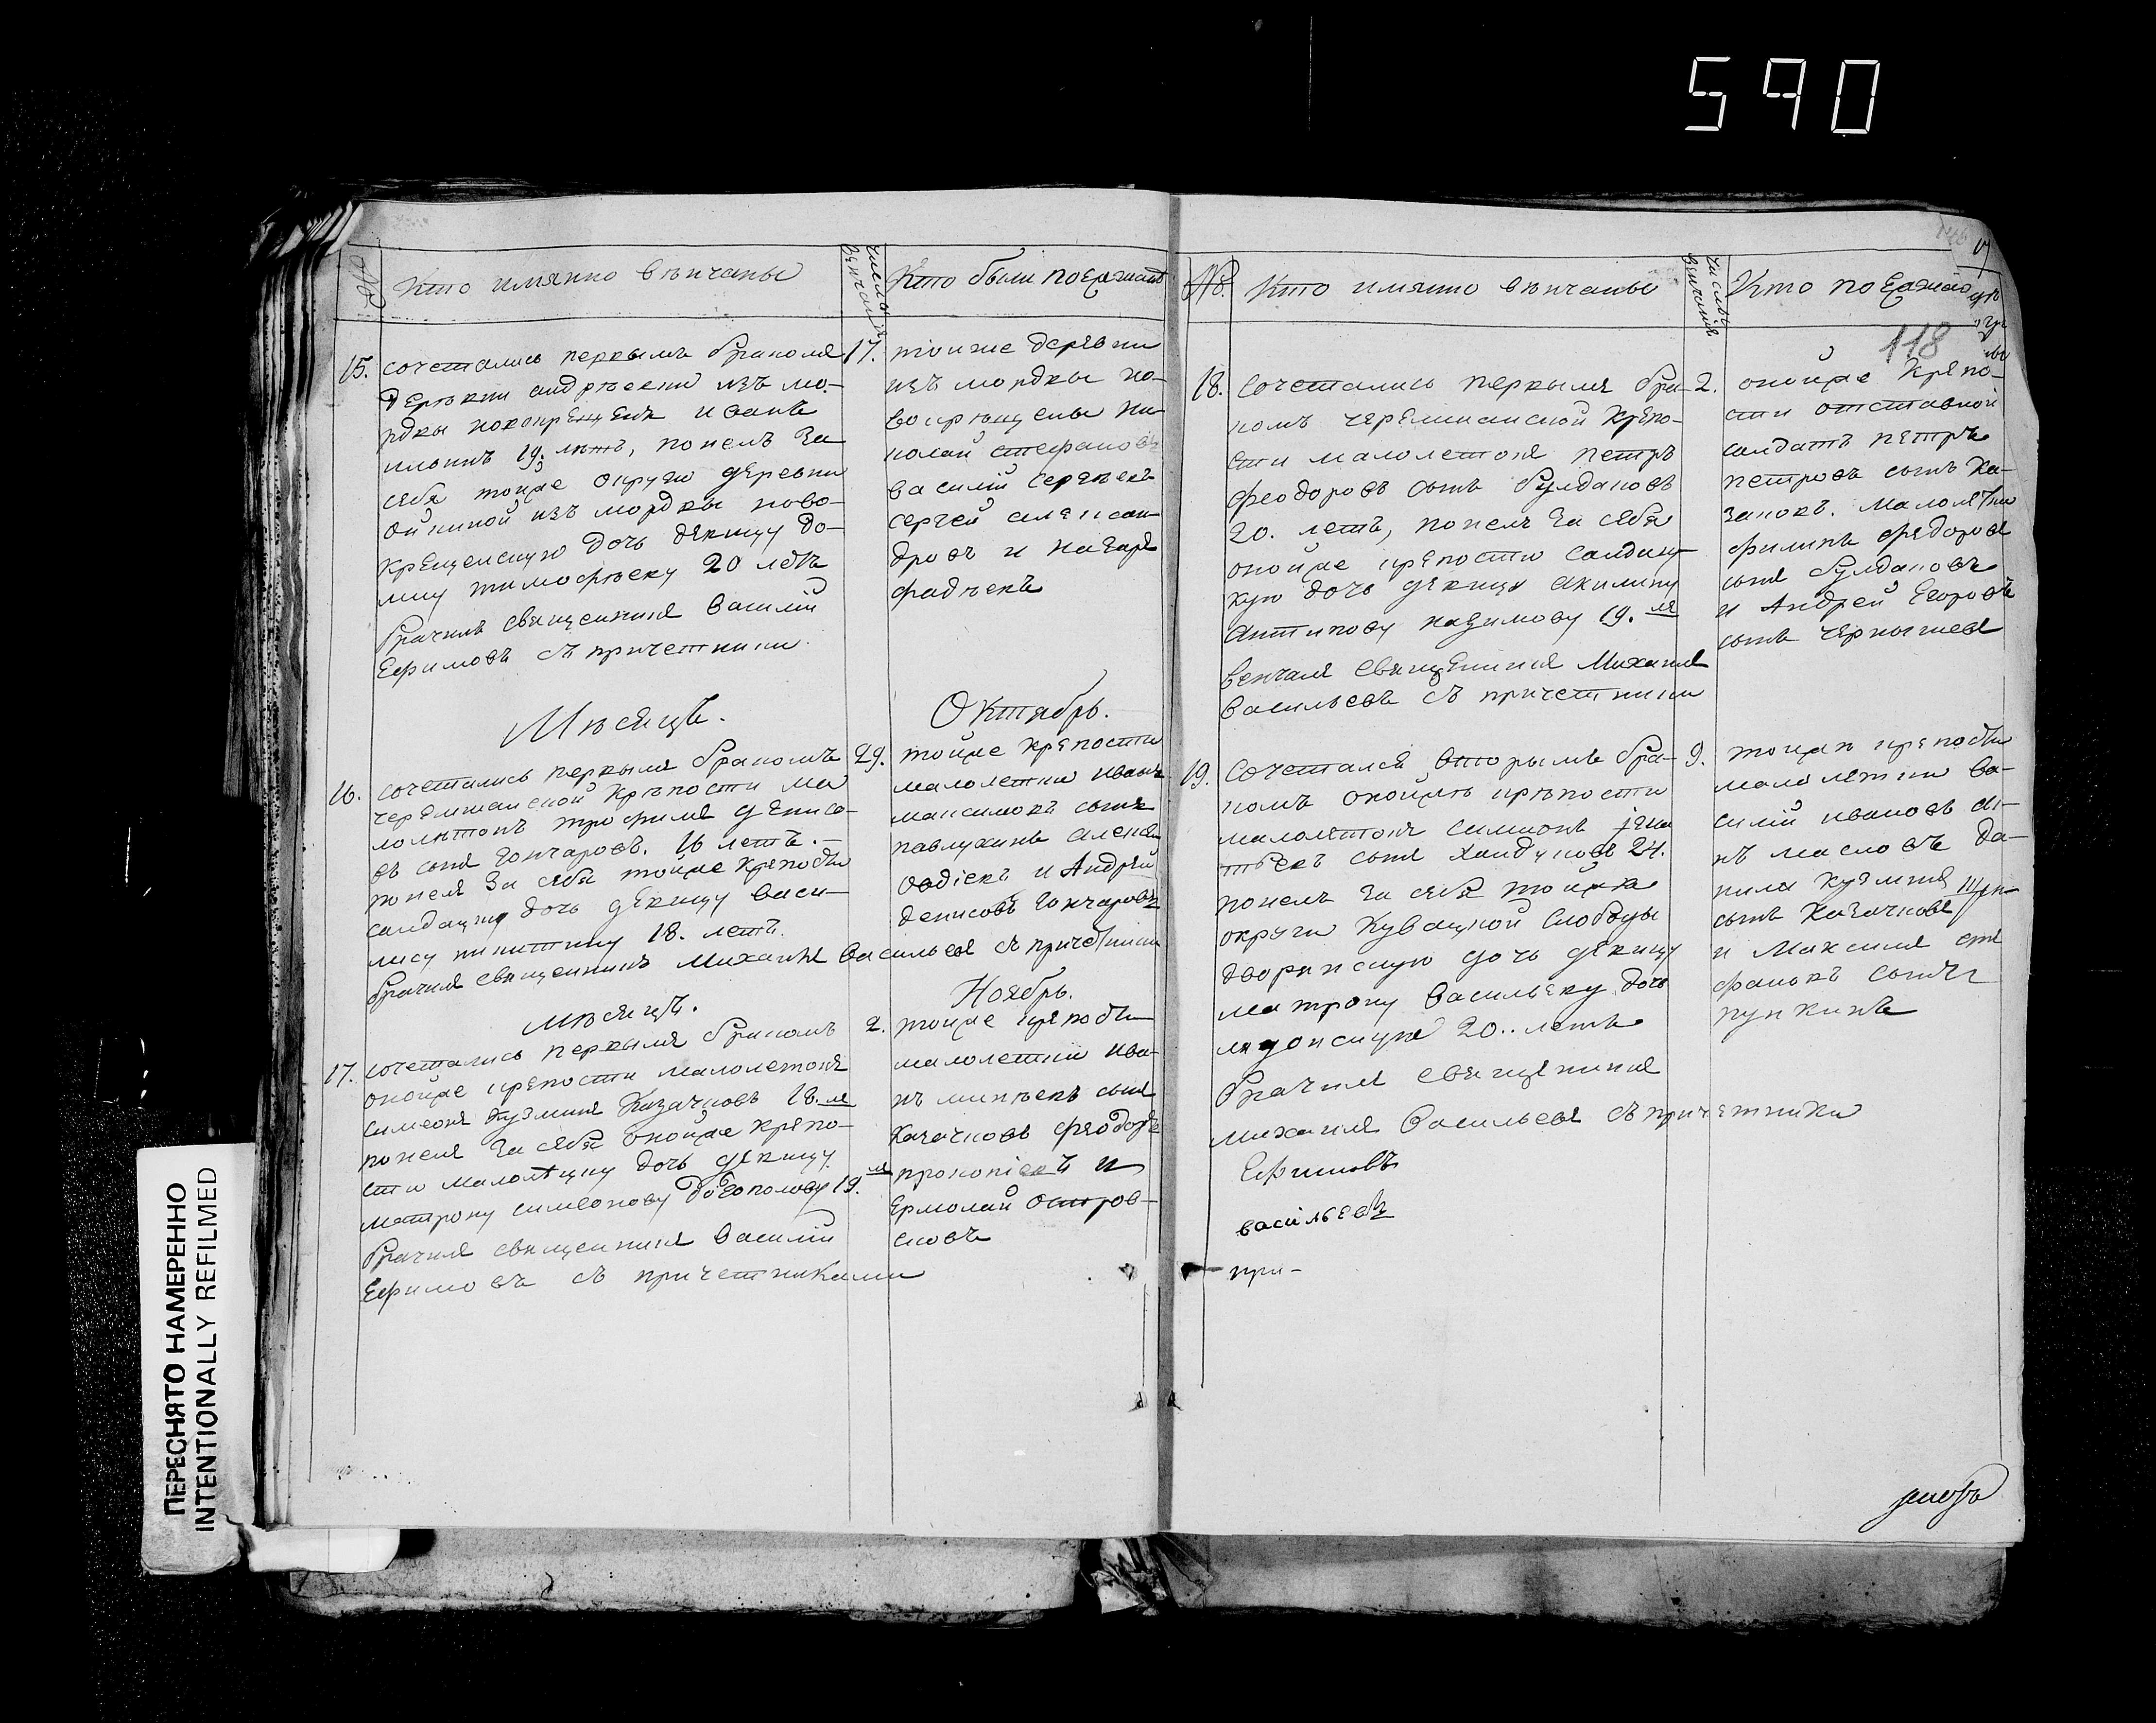 590
№
Кто имянно венчаны
числы венчания
Кто были поезжане
15. сочетались первымъ бракомъ 17.
деревни андреевки изъ мо-
рдвы новокрещенъ иванъ
ильинъ 19. летъ, понелъ за
себя тойже округи деревни
ойкиной изъ мордвы ново-
крещенскую дочь девицу до-
мну тимофееву 20 летъ
Брачилъ священникъ Василий
Ефимовъ съ причетники.
тойже деревни
изъ мордвы но-
вокрещены ни-
колай стефановъ
василий сергеевъ
сергей александ-
дровъ и назаръ
фадеевъ
Месяцъ.
Октябрь.
16. сочетались первымъ бракомъ 29.
черемшанской крепости ма
лолетокъ трофимъ денисо-
въ сынъ Гончаровъ. 16 летъ.
понелъ за себя тойже крепости
салдацкую дочь девицу васи-
лису никитину 18. летъ.
брачилъ священникъ Михаилъ Васильевъ съ причетники
тойже крепости
малолетки иванъ
максимовъ сынъ
павлухинъ алексей
Овдиевъ и Андрей
денисовъ Гончаровъ
месяцъ.
Ноябрь.
17. сочетались первымъ бракомъ 2.
оной же крепости малолетокъ
симеонъ кузминъ Казачковъ 18. ле
понелъ за себя оной же крепо-
сти малолетцку дочь девицу
матрону симеонову 19. ле
Брачилъ священникъ Василий
Ефимовъ съ причетниками
тойже крепости
малолетки ива-
нъ минеевъ сынъ
Казачковъ феодоръ
прокопиевъ и
Ермолай Остров-
сковъ
№.
Кто имянно венчаны
числы венчания
Кто поезжане
118
18. Сочетались первымъ бра- 2.
комъ черемшанской крепо-
сти малолетокъ петръ
феодоровъ сынъ Булдаковъ
20. летъ, понелъ за себя
оной же крепости салдацкую
дочь девицу акилину
Антипову назимову 19. ле
венчалъ священникъ Михаилъ
Васильевъ съ причетники
оной же крепо-
сти отставной
салдатъ петръ
петровъ сынъ Ка-
заковъ. малолетки
филипъ федоровъ
сынъ Булдаковъ
и Андрей Егоровъ
сынъ чернышевъ
19. Сочетался вторымъ бра- 9.
комъ оной же крепости
малолетокъ симионъ
сынъ 24.
понелъ за себя тойже
округи Кувацкой слободы
дворянскую дочь девицу
матрону Васильеву дочь
20.. летъ
Брачилъ священникъ
михаилъ Васильевъ съ причетники
тойже крепости
малолетки ва-
силий ивановъ сы-
нъ масловъ да-
нила кузминъ
сынъ Казачковъ
и Максимъ сте
фановъ сынъ
пупкинъ
Ефимовъ
васильевъ
при-
ПЕРЕСНЯТО НАМЕРЕННО
INTENTIONALLY REFILMED